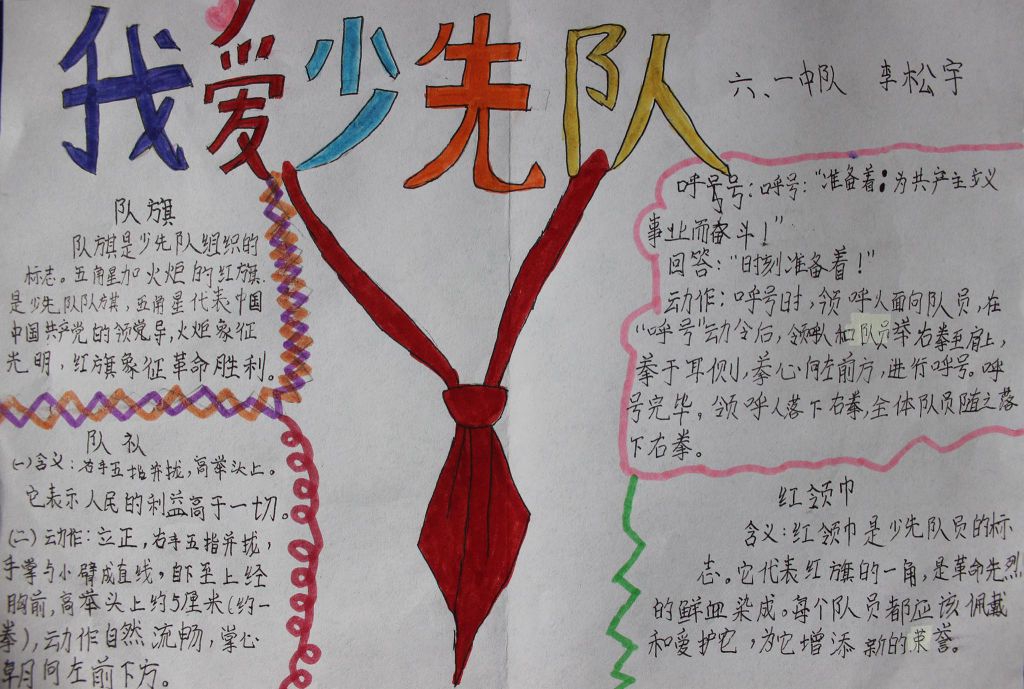 我爱少先队
六、一中队 李松宇
队旗
队旗是少先队组织的
标志。五角星加火炬的红旗
是少先队队旗,五角星代表中国
中国共产党的领党导,火炬象征
光明,红旗象征革命胜利。
队礼
(一)含义:右手五指并拢,高举头上。
它表示人民的利益高于一切。
(二)动作:立正,右手五指并拢,
手掌与小臂成直线,自下至上经
胸前,高举头上约5厘米(约一
拳),动作自然流畅,掌心
朝向左前下方。
呼号:呼号:“准备着:为共产主义
事业而奋斗!”
回答:“时刻准备着!”
动作:呼号时,领呼人面向队员,在
“呼号”动令后,领呼人和队员举右拳至肩上,
拳于耳侧,拳心向左前方,进行呼号。呼
号完毕,领呼人落下右拳,全体队员随之落
下右拳。
红领巾
含义:红领巾是少先队员的标
志。它代表红旗的一角,是革命先烈
的鲜血染成。每个队员都应该佩戴
和爱护它,为它增添新的荣誉。